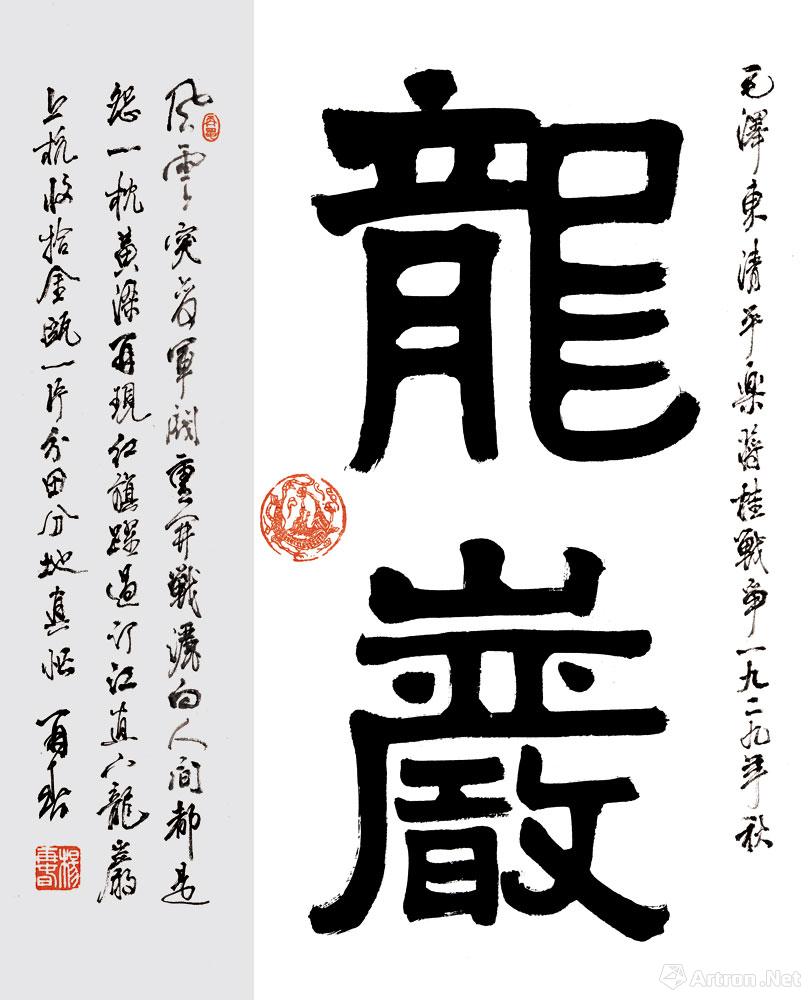 毛澤東清平樂蔣桂戰爭一九二九年秋
龍
巖
風雲突變軍閥重開戰灑向人間都是
怨一枕黃梁再現紅旗躍過汀江直下龍巖
上杭收拾金甌一片分田分地真忙 再春
Artron.Net